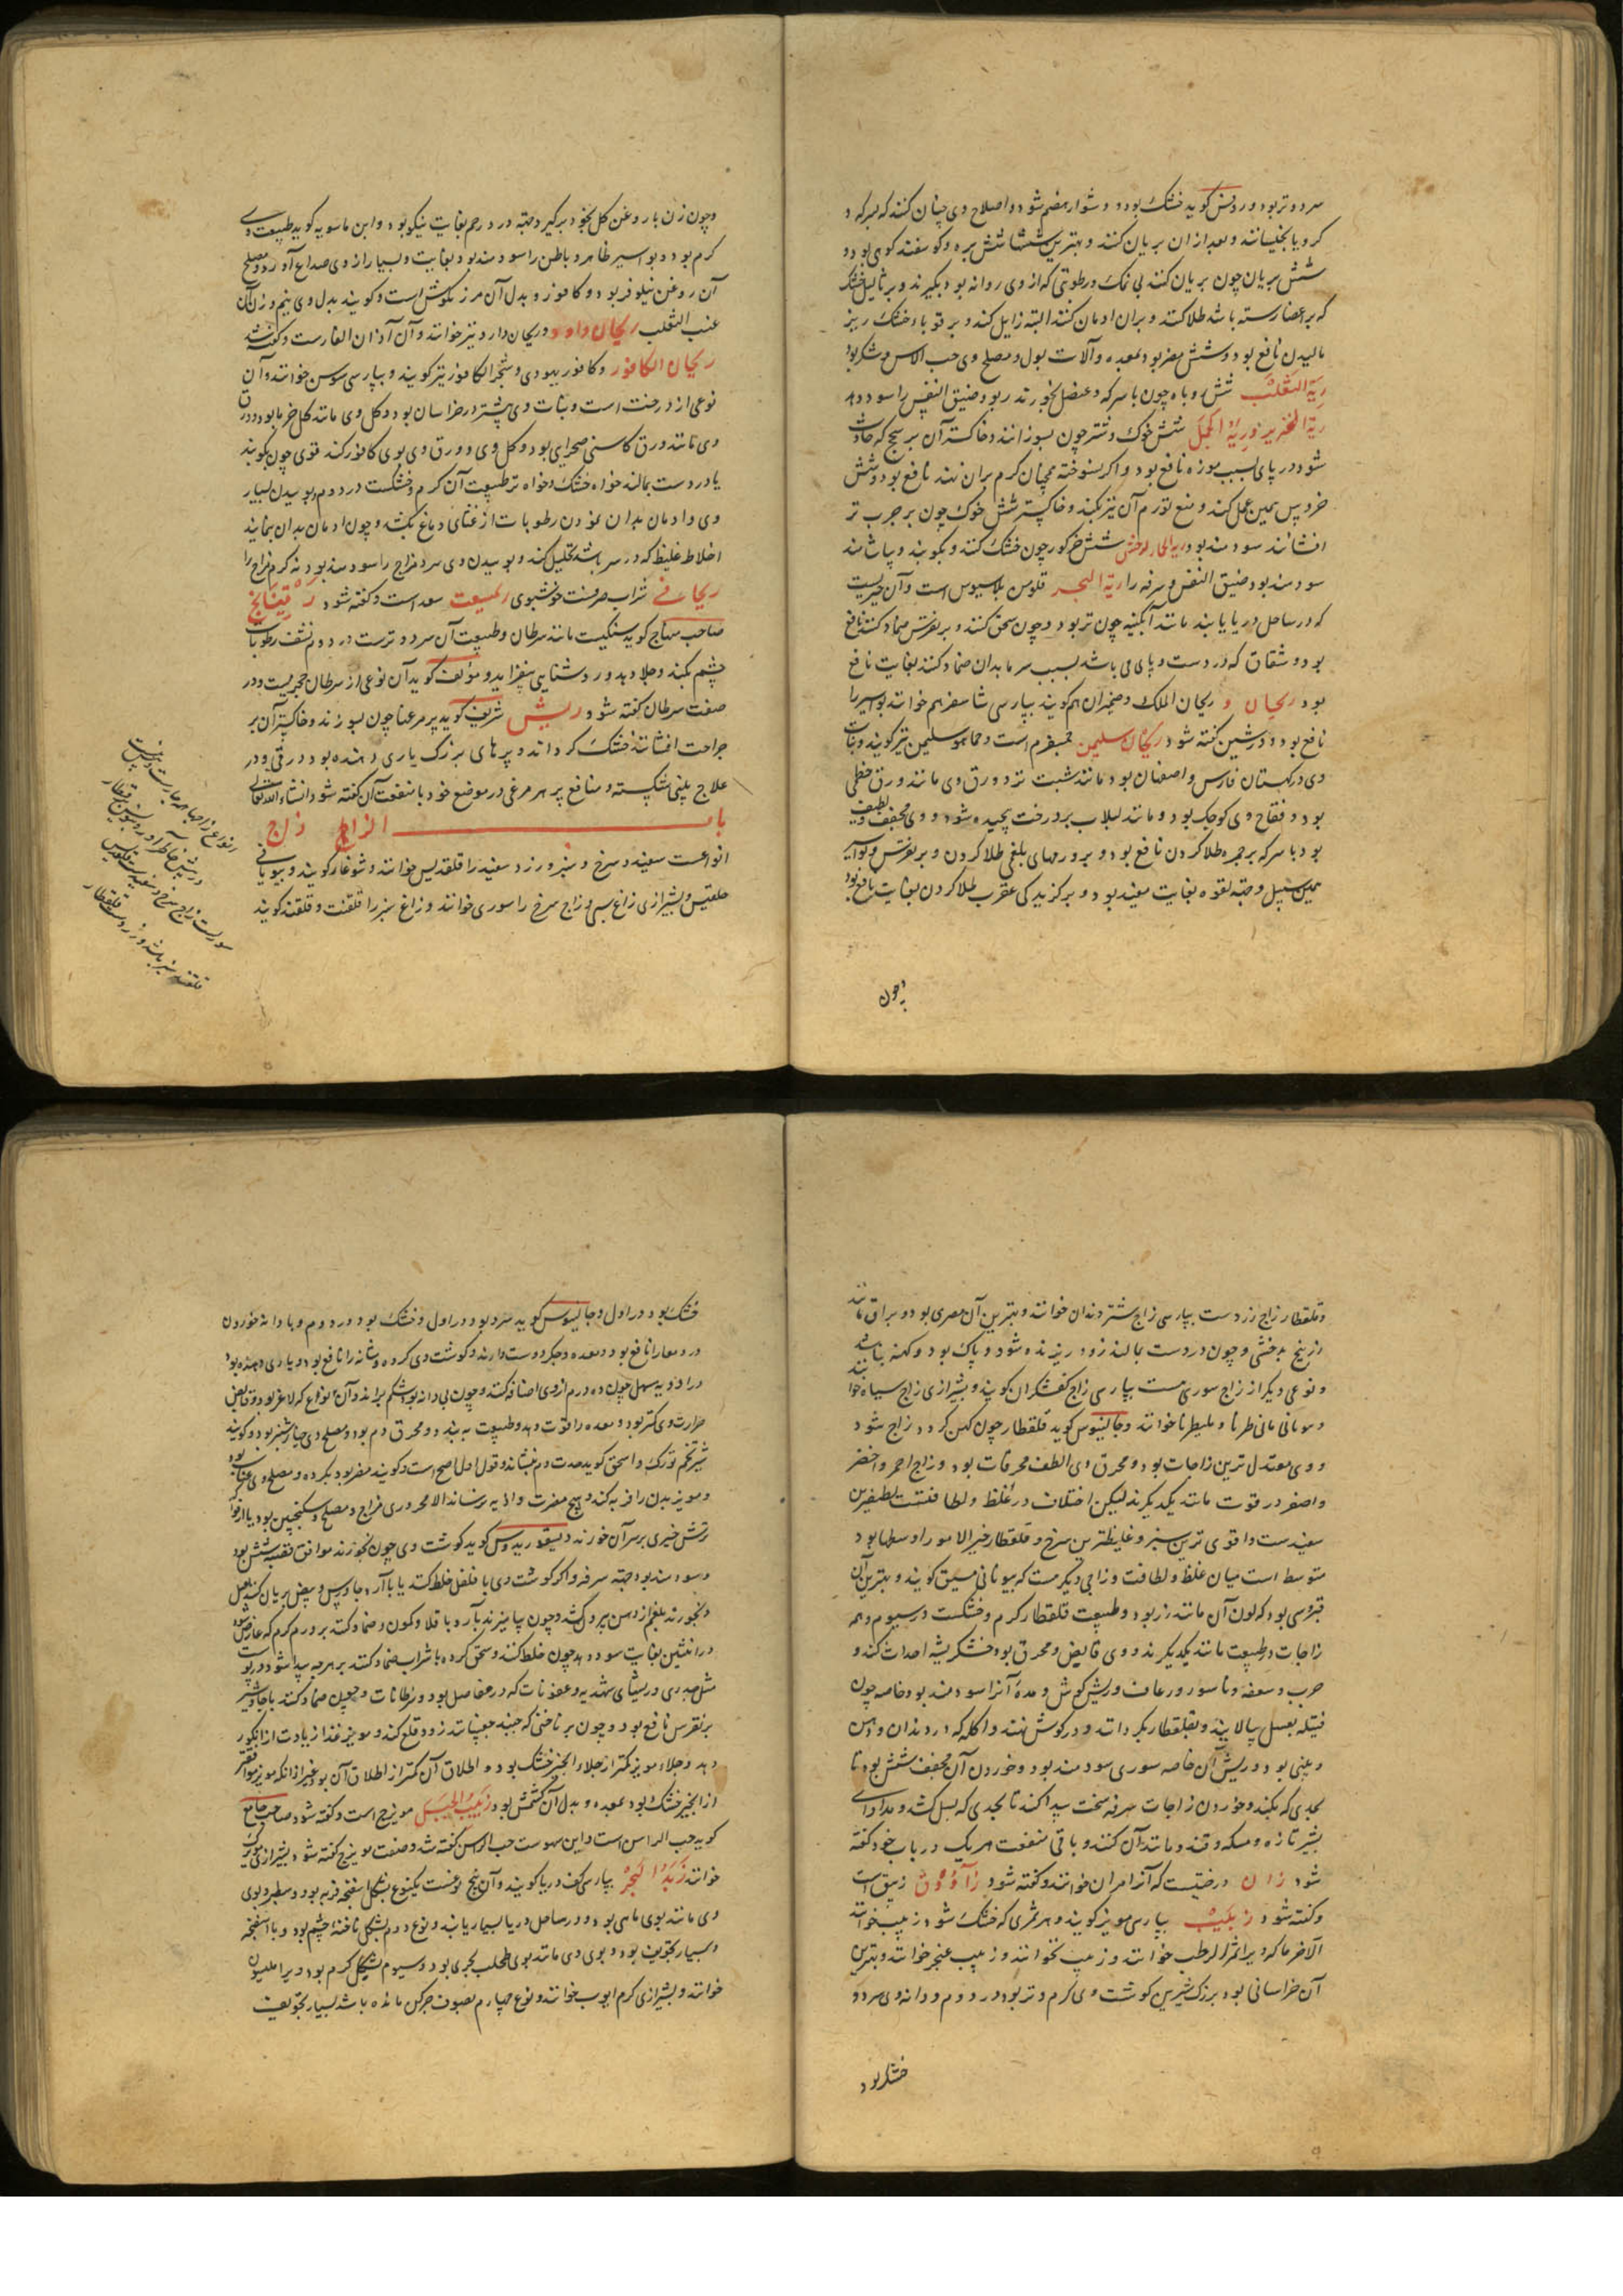 سرد و تر بود و روفس گوید خشک بود و دشوار هضم شود و اصلاح وی چنان کنند که بسرکه و
کرویا بخیسانند و بعد از ان بریان کنند و بهترین ششها شش بره و گوسفند کوهی بود و
شش بریان چون بریان کنند بی نمک و رطوبتی که از وی روانه بود بگیرند و بر ثالیل خشک
که بر اعضا رسته باشد طلا کنند و بران ادمان کنند البته زایل کند و بر قوبا خشک ریز
مالیدن نافع بود و شش مضر بود بمعده و آلات بول و مصلح وی حب الاس و شکر بود
ریة الثعلب شش روباه چون با سرکه عنصل بخورند ربو و ضیق النفس را سود دهد
ریة الخنزیر و ریة الجمل شش خوک و شتر چون بسوزانند و خاکستر آن بر سحج که حادث
شود در پای بسبب موزه نافع بود و اگر نسوخته همچنان گرم بران نهند نافع بود و شش
خروس همین عمل کند و منع تورم آن نیز بکند و خاکستر شش خوک چون بر جرب تر
افشانند سودمند بود ریة الحمار الوحش شش خر گور چون خشک کنند و بکوبند و بیاشامند
سودمند بود ضیق النفس و سرفه را ریة البحر قلومن بلاسیوس است و آن چیزیست
که در ساحل دریا یابند مانند آبگینه چون تر بود و چون سحق کنند و بر نقرس ضماد کنند نافع
بود و شقاق که در دست و پای می باشد بسبب سرما بدان ضماد کنند بغایت نافع
بود ریحان و ریحان الملک و ضیمران هم گویند بپارسی شاهسفرهم خوانند بواسیر را
نافع بود و در شین گفته شود ریحان سلیمن جمسفرم است و حماحم سلیمن نیز گویند و نبات
وی در کهستان فارس و اصفهان بود مانند شبت تر و ورق وی مانند ورق خطمی
بود و فقاح وی کوچک بود و مانند لبلاب بر درخت پیچیده شود و وی مجفف و لطیف
بود با سرکه بر جمره طلا کردن نافع بود و بر ورمهای بلغمی طلا کردن و بر نقرس و بواسیر
همین سبیل و جهة لقوه بغایت مفید بود و بر گزیدگی عقرب طلا کردن بغایت نافع بود
و چون
و چون زن با روغن گل بخود برگیرد جهة درد رحم بغایت نیکو بود و ابن ماسویه گوید طبیعت وی
گرم بود و بواسیر ظاهر و باطن را سودمند بود بغایت و بسیار از وی صداع آورد و مصلح
آن روغن نیلوفر بود و کافور و بدل آن مرزنگوش است و گویند بدل وی نیم وزن آن
عنب الثعلب ریحان داود و ریحان دارد نیز خوانند و آن آذان الفار است و گفته شد
ریحان الکافور و کافور یهودی و شجر الکافور نیز گویند و بپارسی سوسن خوانند و آن
نوعی از درخت است و نبات وی بیشتر در خراسان بود و گل وی مانند گل خرما بود و ورق
وی مانند ورق کاسنی صحرایی بود و گل وی و ورق وی بوی کافور کند قوی چون بکوبند
یا در دست بمالند خواه خشک و خواه تر طبیعت آن گرم و خشکست در دوم بوییدن بسیار
وی و ادمان بدان نمودن رطوبات از غشای دماغ بکشد و چون ادمان بدان نمایند
اخلاط غلیظ که در سر باشد تحلیل کند و بوییدن وی سرد مزاج را سودمند بود نه گرم مزاج را
ریحانی شراب صرفست خوشبوی ریمیعت سعد است و گفته شود رقیتانج
صاحب منهاج گوید سنگیست مانند سرطان و طبیعت آن سرد و ترست در دوم نشف رطوبات
چشم بکند و جلا دهد و روشنایی بیفزاید و مؤلف گوید آن نوعی از سرطان حجریست و در
صفت سرطان گفته شود ریش شریف گوید پر مرغها چون بسوزند و خاکستر آن بر
جراحت افشانند خشک گرداند و پرهای بزرگ یاری دهنده بود در قی و در
علاج بینی شکسته و منافع پر هر مرغی در موضع خود با منفعت آن گفته شود انشاء الله تعالی
باب الزاء زاج
انواعست سفید و سرخ و سبز و زرد سفید را قلقدیس خوانند و شوغار گویند و بیونانی
خلقتیس و بشیرازی زاغ سی و زاج سرخ را سوری خوانند و زاغ سبز را قلقنت و قلقند گویند
و قلقطار زاج زردست بپارسی زاج شتر دندان خوانند و بهترین آن مصری بود و براق مانند
زرنیخ بدخشی و چون در دست بمالند زود ریزنده شود و پاک بود و کهنه نباشد
و نوعی دیگر از زاج سوری هست بپارسی زاج کفشگران گویند و بشیرازی زاج سیاه خوانند
و یونانی مالی طرنا و ملیطرنا خوانند و جالینوس گوید قلقطار چون کهن گردد زاج شود
و وی معتدل ترین زاجات بود و محرق وی الطف محرقات بود و زاج احمر و اخضر
و اصفر در قوت مانند یکدیگرند لیکن اختلاف در غلظ و لطافتست لطیفترین
سفیدست و اقوی ترین سبز و غلیظترین سرخ و قلقطار خیر الامور اوسطها بود
متوسط است میان غلظ و لطافت و زاجی دیگر هست که بیونانی میسق گویند و بهترین آن
قبرسی بود که لون آن مانند زر بود و طبیعت قلقطار گرم و خشکست در سیوم و همه
زاجات در طبیعت مانند یکدیگرند و وی قابض و محرق بود خشک ریشه احداث کند و
جرب و سعفه و ناسور و رعاف و ریش گوش و مده آنرا سودمند بود خاصه چون
فتیله بعسل بیالایند و بقلقطار بگردانند و در گوش نهند و آکله که در دندان و دهن
و بینی بود و ریش آن خاصه سوری سودمند بود و خوردن آن مجفف شش بود تا
بحدی که بکشد و خوردن زاجات سرفه سخت پیدا کند تا بحدی که بسل کشد و مداوای
بشیر تازه و مسکه و قند و مانند آن کنند و باقی منفعت هر یک در باب خود گفته
شود زان درختیست که آنرا مران خوانند و گفته شود زاووق زیبق است
و گفته شود زبیب بپارسی مویز گویند و هر ثمری که خشک شود زبیب خوانند
الا خرما که ویرا تمر الرطب خوانند و زبیب نخوانند و زبیب عنجر خوانند و بهترین
آن خراسانی بود بزرگ شیرین گوشت وی گرم و تر بود در دوم و دانه وی سرد و
خشک بود
خشک بود در اول و جالینوس گوید سرد بود در اول و خشک بود در دوم و با دانه خوردن
درد معا را نافع بود و معده و جگر دوست دارند و گوشت وی گرده و مثانه را نافع بود و یاری دهنده بود
در ادویه مسهل چون ده درم از وی اضافه کنند و چون بی دانه بود شکم براند و آن انواع که لاغر بود و قابض
حرارت وی کمتر بود و معده را قوت دهد و طبیعت ببندد و محرق دم بود و مصلح وی خیارشنبر بود و گویند
شیر تخم تورک و اسحق گوید حدت دم بنشاند و قول اول اصح است و گویند مضر بود بگرده و مصلح وی عناب بود
و مویز بدن را فربه کند و هیچ مضرت و اذیه نرساند الا محروری مزاج و مصلح وی سکنجبین بود یا از فواکه
ترش چیزی بر سر آن خورند دیسقوریدوس گوید گوشت وی چون بخورند موافق قصبه شش بود
و سودمند بود جهة سرفه و اگر گوشت وی با فلفل خلط کنند یا با آرد جاورس و بیض بریان کنند با عسل
و بخورند بلغم از دهن بیرون کشد و چون بیامیزند با آرد باقلا و کمون و ضماد کنند بر ورم گرم که عارض شود
در انثیین بغایت سود دهد چون خلط کنند و سحق کرده با شراب ضماد کنند بر هرچه پیدا شود در پوست
مثل جدری و ریشهای شهدیه و عفونات که در مفاصل بود و سرطانات و چون ضماد کنند با جاوشیر
بر نقرس نافع بود و چون بر ناخنی که جنبد چسبانند زود قلع کند و مویز غذا زیادت از انگور
دهد و جلاء مویز کمتر از جلاء انجیر خشک بود و اطلاق آن کمتر از اطلاق آن بود غیر از آنکه مویز موافقتر
از انجیر خشک بود بمعده و بدل آن کشمش بود زبیب الجبل مویزج است و گفته شود صاحب جامع
گوید حب الراس است و این سهوست حب الراس گفته شد و صفت مویزج گفته شود و بشیرازی مویزک
خوانند زبد البحر بپارسی کف دریا گویند و آن پنج نوعست یکنوع بشکل اسفنجه فربه بود و سطبر و بوی
وی مانند بوی ماهی بود و در ساحل دریا بسیار یابند و نوع دوم بشکل ناخنه چشم بود و با اسفنجه
و بسیار تجویف بود و بوی وی مانند بوی طحلب بحری بود و سیوم بشکل کرم بود و ویرا ملیسون
خوانند و بشیرازی کرم ایوب خوانند و نوع چهارم بصوف چرکن مانده باشد بسیار تجویف